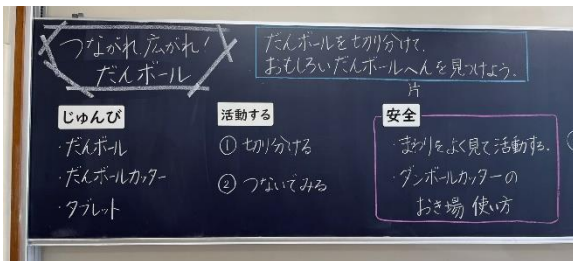 つながれ,広がれ!
だんボール
だんボールを切り分けて,
おもしろいだんボールへんを見つけよう.
片
じゅんび
・だんボール
・だんボールカッター
・タブレット
活動する
① 切り分ける
② つないでみる
安全
・まわりをよく見て活動する.
・ダンボールカッターの
おき場 使い方